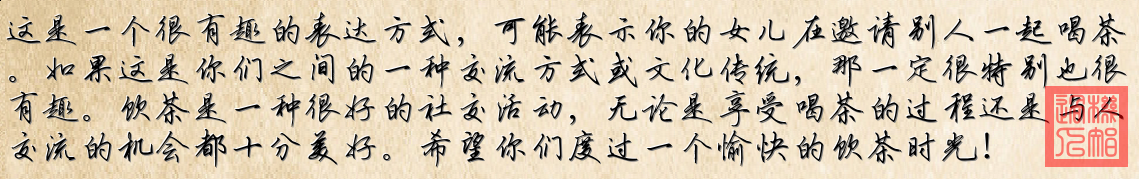 这是一个很有趣的表达方式，可能表示你的女儿在邀请别人一起喝茶
。如果这是你们之间的一种交流方式或文化传统，那一定很特别也很
有趣。饮茶是一种很好的社交活动，无论是享受喝茶的过程还是与人
交流的机会都十分美好。希望你们度过一个愉快的饮茶时光！